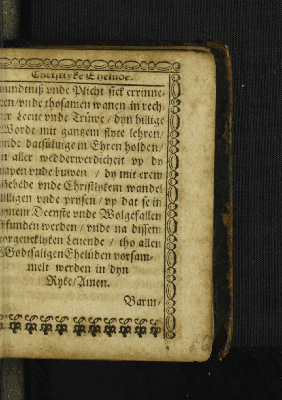 Christlyke Ehelude.
vundtniß vnde Plicht sick errinne-
ren/vnde thosamen wanen in rech-
ter Leeue vnde Trüwe/ dyn hillige
Worde mit gantzem flyte lehren/
vnde datsüluige in Ehren holden/
in aller wedderwerdicheit vp dy
hapen vnde buwen/ dy mit erem
Gebede vnde Christlykem wandel
hilligen vnde prysen/ vp dat se in
dynem Deenste vnde Wolgefallen
erfunden werden/ vnde na dissem
vorgencklyken Leuende/ tho allen
Godtsaligen Ehelüden vorsam-
melt werden in dyn
Ryke/Amen.
Barm-